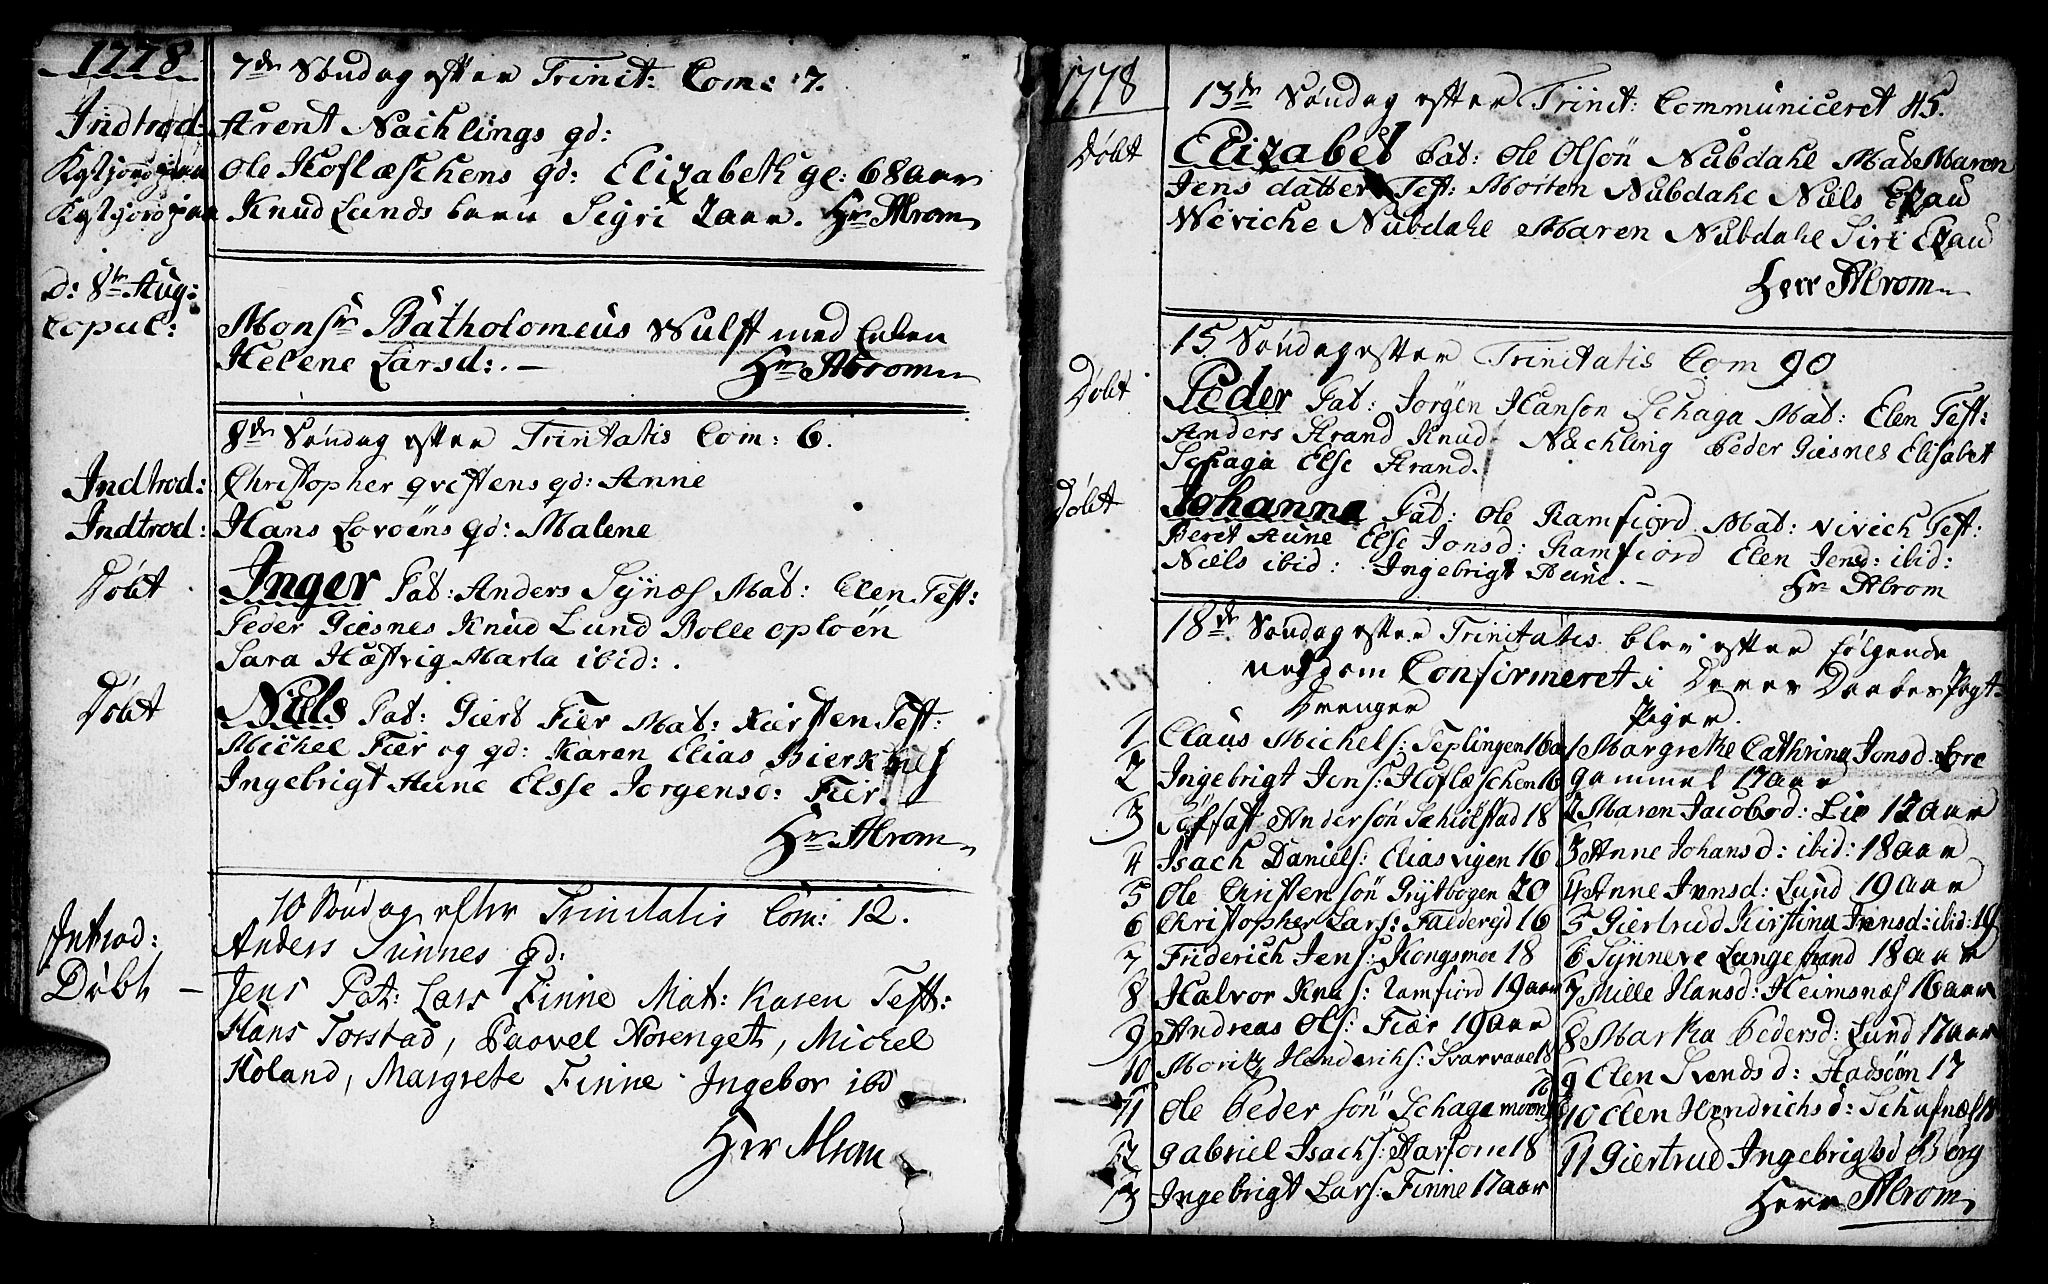 1778
7de Søndag efter Trinit: Com: 7.
Indtrod: Arent Nachlings qd:
Ole Hoflæschens qd: Elizabeth gl: 68 aar
Knud Lunds barn Sigri 2 aar. Hr Abrom
d: 8tn Aug:
Copul: Monsr Batholomeus Wulff med Enken
Helene Larsd: . — Hr Abrom
8de Søndag efter Trinitatis Com: 6.
Indtrod: Christopher qvistens qd: Anne
Indtrod: Hans Lovöens qd: Malene
Döbt Inger Pat: Anders Synæs Mat: Elen Test:
Peder Giesnes Knud Lund Bolle oploën
Sara Hæstvig Marta ibid: .
Döbt Niels Pat: Giert Fier Mat: Kiersten Test:
Michel Fier og qd: Karen Elias Bierknes
Ingebrigt Aune Elsse Jorgensd: Fier.
Hr Abrom
10 Søndag efter Trinitatis Com: 12.
Introd: Anders Sunnes qd:
Döbt – Jens Pat: Lars Finne Mat: Karen Test:
Hans Torstad, Paovel Rosenget, Michel
Höland, Margrete Finne Ingebor ibd
Herr Abrom
1778
13de Søndag efter Trinit: Communiceret 45.
Döbt Elizabet Pat: Ole Olsön Nubdahl Mat Maren
Jens datter Test: Morten Nubdahl Niels Ezau
Weviche Nubdahl Maren Nubdahl Siri Ezau
Herr Abrom
15 Søndag efter Trinitatis Com 90
Döbt Peder Pat: Jörgen Hanson Schaga Mat: Elen Test:
Anders Strand Knud Nachling Peder Giesnes Elisabet
Schaga Else Strand.
Döbt Johanna Pat: Ole Ramfiord Mat: vivich Test:
Beret Aune Else Jonsd: Ramfiord Elen Jensd: ibid:
Niels ibid: Ingebrigt Aune. – Hr Abrom
18de Søndag efter Trinitatis blev efter følgende
ungdom Confirmeret i Deres Daabes Pagt
Drenger
1 Claus Michels: Teplingen 16 a
2 Ingebrigt Jens: Hoflæschen 16
3 Anderson Schiölstad 18
4 Isach Daniels: Eliasvigen 16
5 Ole Christensön Grytbogen 20
6 Christopher Lars: 16
7 Friderich Jens: Kongsmoe 18
8 Halvor Knus: Ramfiord 19 aar
9 Andreas Ols: Fiær 19 aar
10 Moritz Hendrichs: Svarvaae 18
11 Ole Pedersön Schagamoen
12 Gabriel Isachs: 18
13 Ingebrigt Lars: Finne 17 aar
Piger.
1 Margrethe Cathrina Jonsd:
gammel 17 aar
2 Maren Jacobsd: Lie 17 aar
3 Anne Johansd: ibid: 18 aar
4 Anne Jensd: Lund 19 aar
5 Giertrud Kirstina Jensd: ibid: 19
6 Synneve Langestrand 18 aar
7 Mille Hansd: Heimsnæs 16 aar
8 Marta Pedersd: Lund 17 aar
9 Elen Svendsd: Hadsöin 17
10 Elen Hendrichsd:
11 Giertrud Ingebrigtsd Börg
Herr Abrom